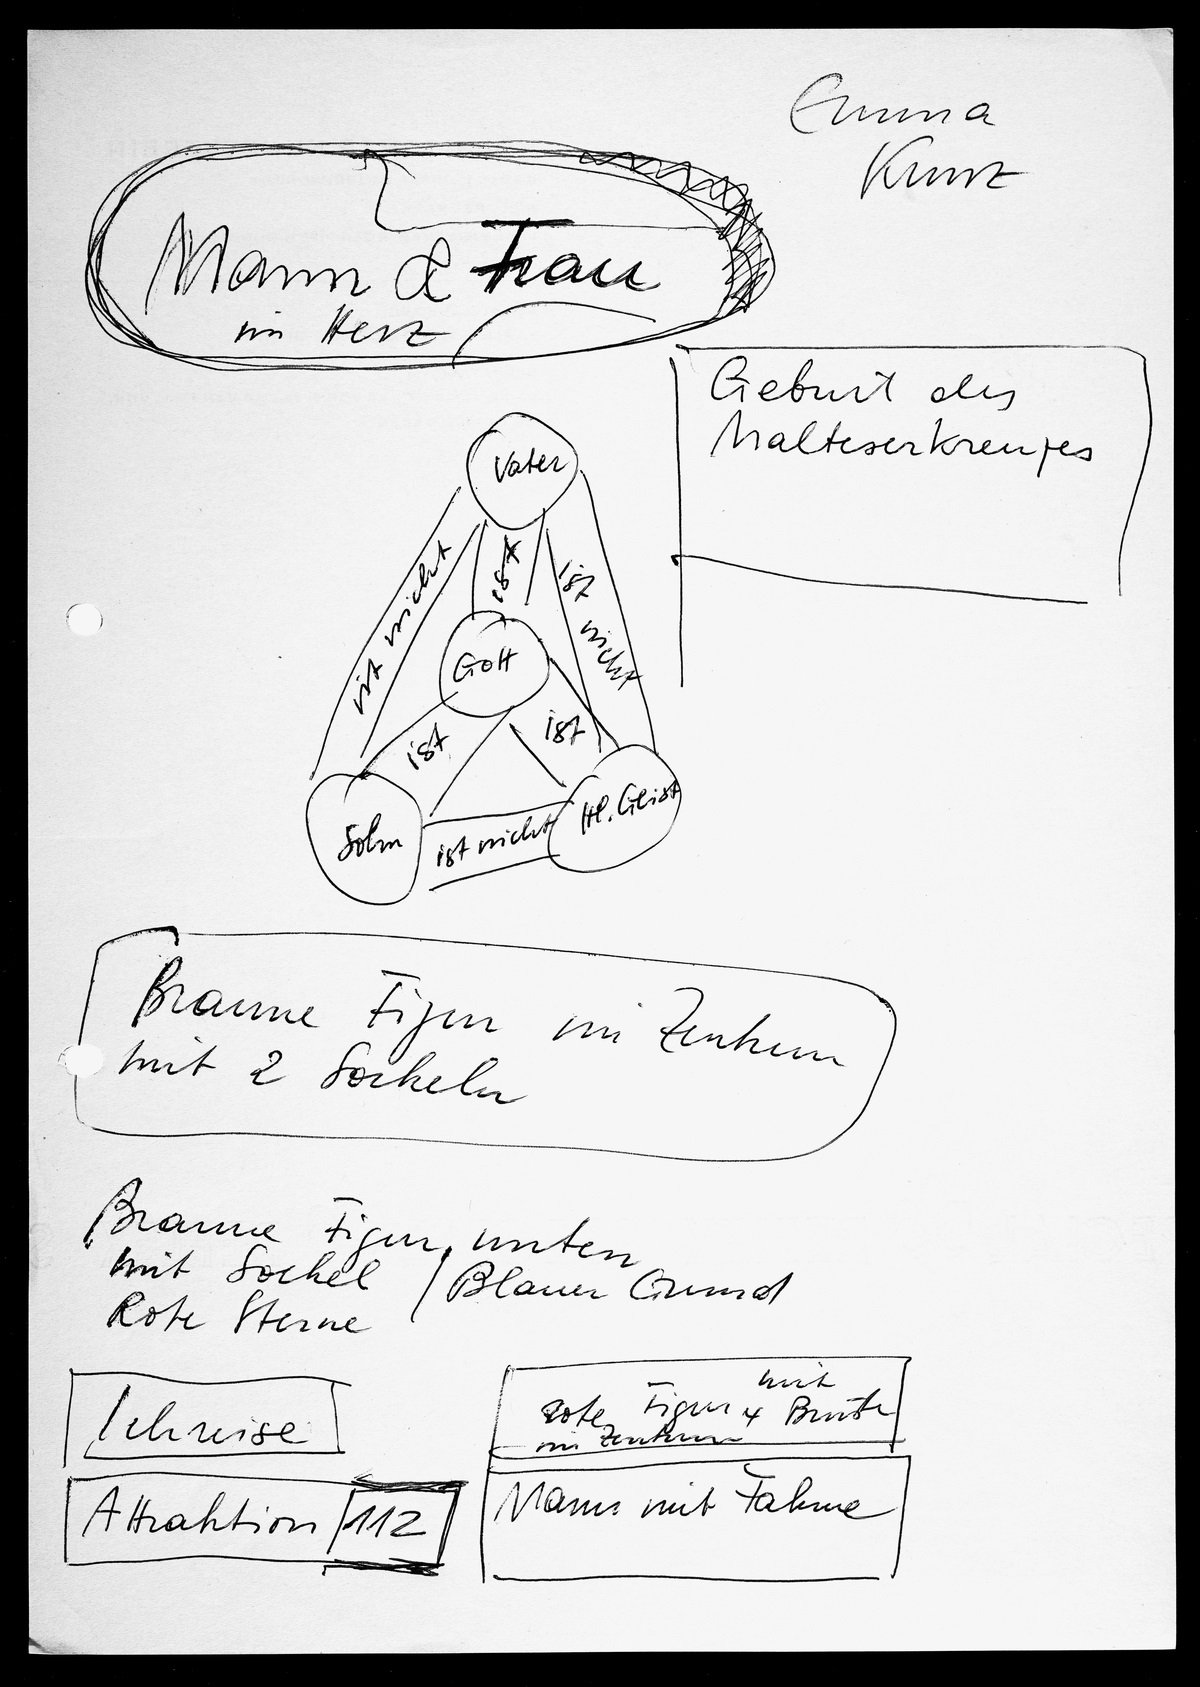 Emma
Kunz
Mann & Frau
im Herz
Geburt des
Malteserkreuzes
Vater
ist nicht
ist
ist nicht
Gott
ist
ist
Sohn
ist nicht
Hl. Geist
Braune Figur im Zentrum
mit 2 Sockeln
Braune Figur, unten
mit Sockel / Blauer Grund
Rote Sterne
Ichreise
rote Figur mit
im Zentrum
Attraktion 112
Mann mit Fahne